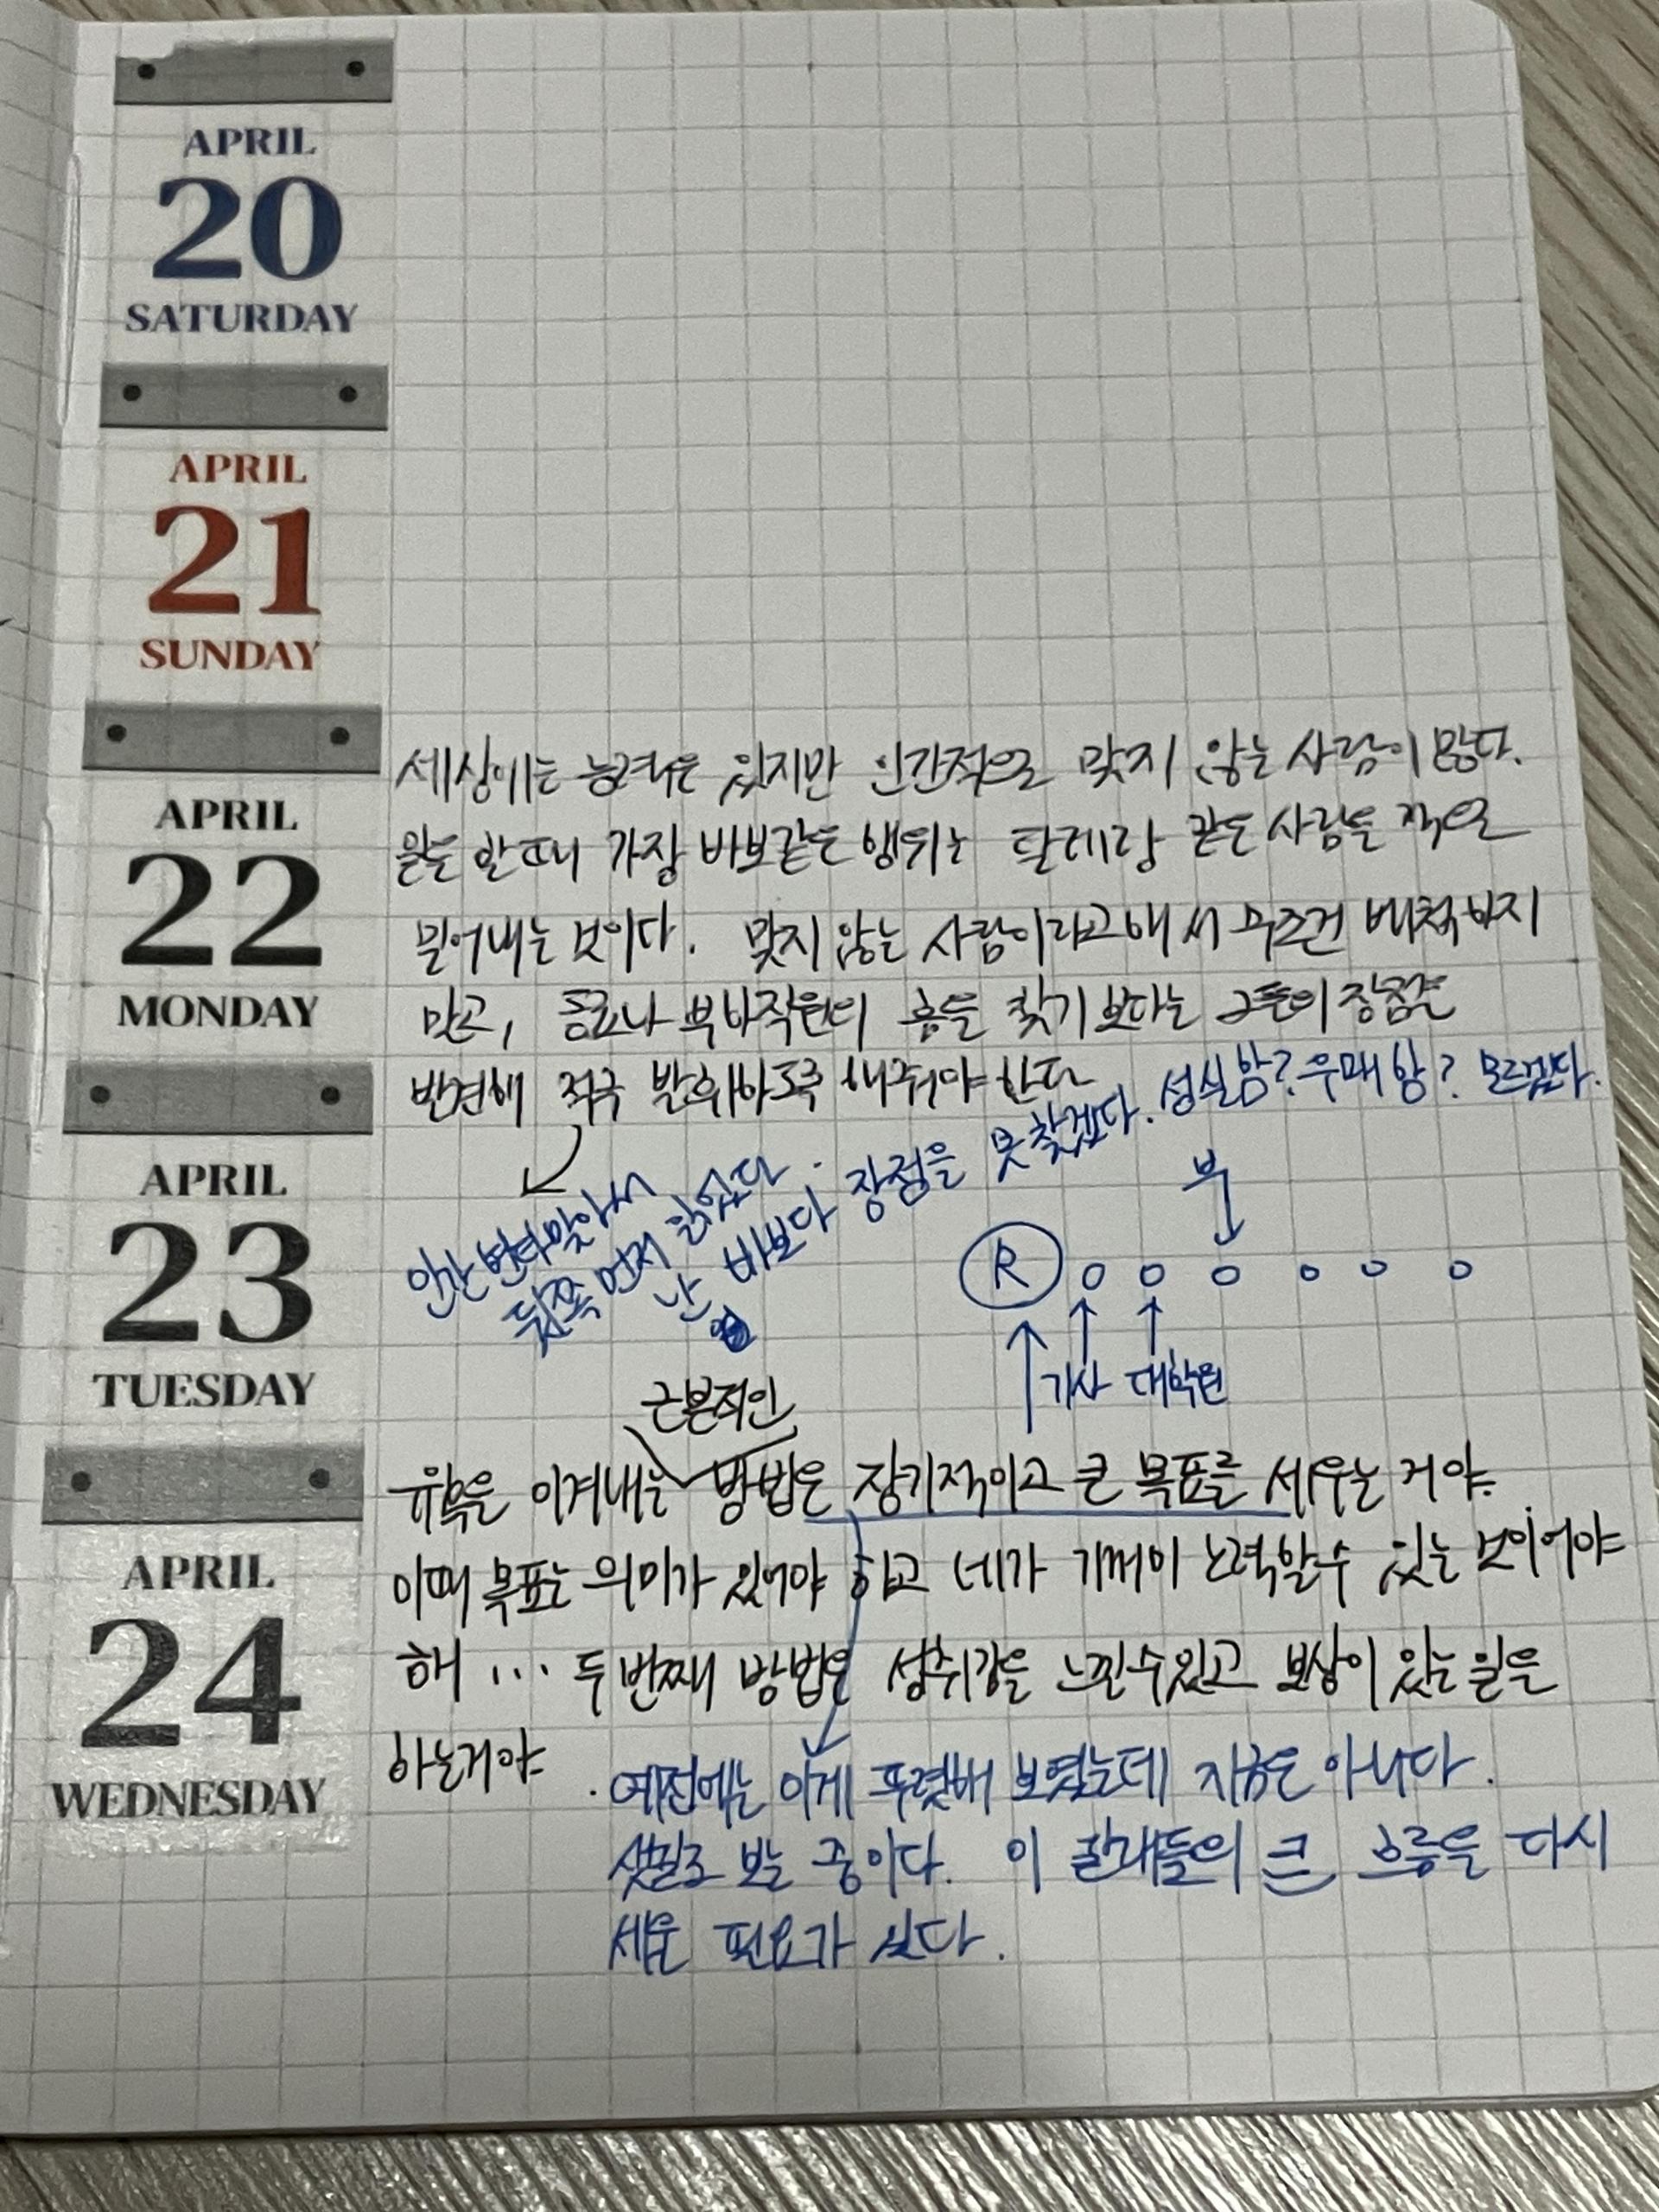 APRIL
20
SATURDAY
APRIL
21
SUNDAY
APRIL
22
MONDAY
세상에는 능력은 있지만 인간적으로 맞지 않는 사람이 많다.
일을 할 때 가장 바보같은 행위는 탈레랑 같은 사람을 적으로
밀어내는 것이다. 맞지 않는 사람이라고해서 무조건 배척하지
말고, 동료나 부하직원의 흠을 찾기 보다는 그들의 장점을
발견해 적극 발휘하도록 해줘야 한다
APRIL
23
TUESDAY
뒤쪽 먼저 읽었다.
난 바보다 장점을 못 찾겠다. 성실함? 우매함? 모르겠다.
부
R
기사 대학원
APRIL
24
WEDNESDAY
근본적인
유혹을 이겨내는 방법은 장기적이고 큰 목표를 세우는 거야.
이때 목표는 의미가 있어야 하고 네가 기꺼이 노력할수 있는 것이어야
해 ... 두번째 방법은 성취감을 느낄수있고 보상이 있는 일을
하는거야
예전에는 이게 뚜렷해 보였는데 지금은 아니다.
샛길로 보는 중이다. 이 갈래들의 큰 흐름을 다시
세울 필요가 있다.